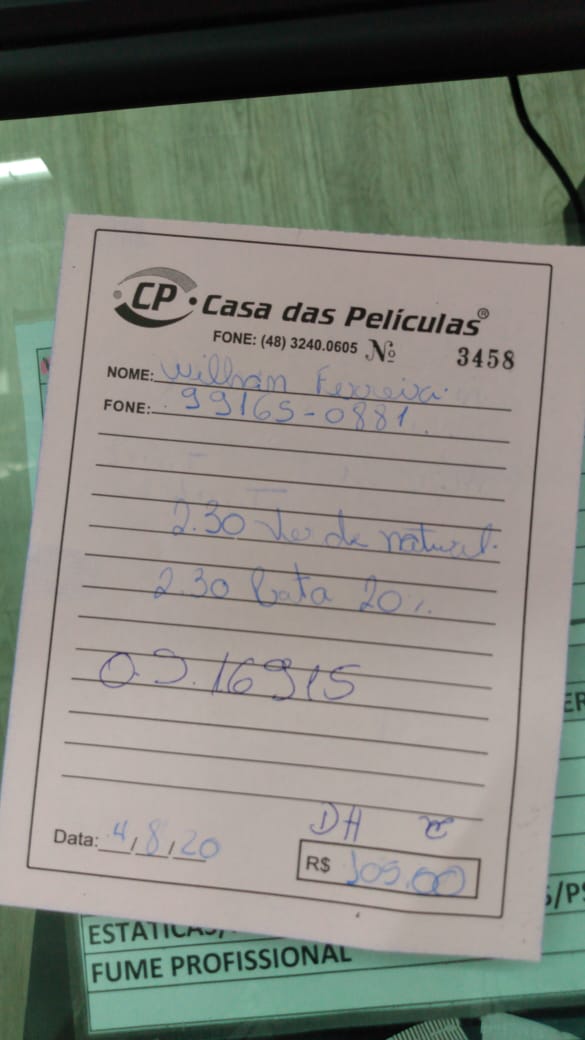 CP · Casa das Películas®
FONE: (48) 3240.0605 Nº 3458
NOME: Ferreira
FONE: 99165-0881
2.30 natural
2.30 Bata 20%
09.16915
DH
Data: 4/8/20 R$ 105,00
ESTÁTICAS/
FUME PROFISSIONAL